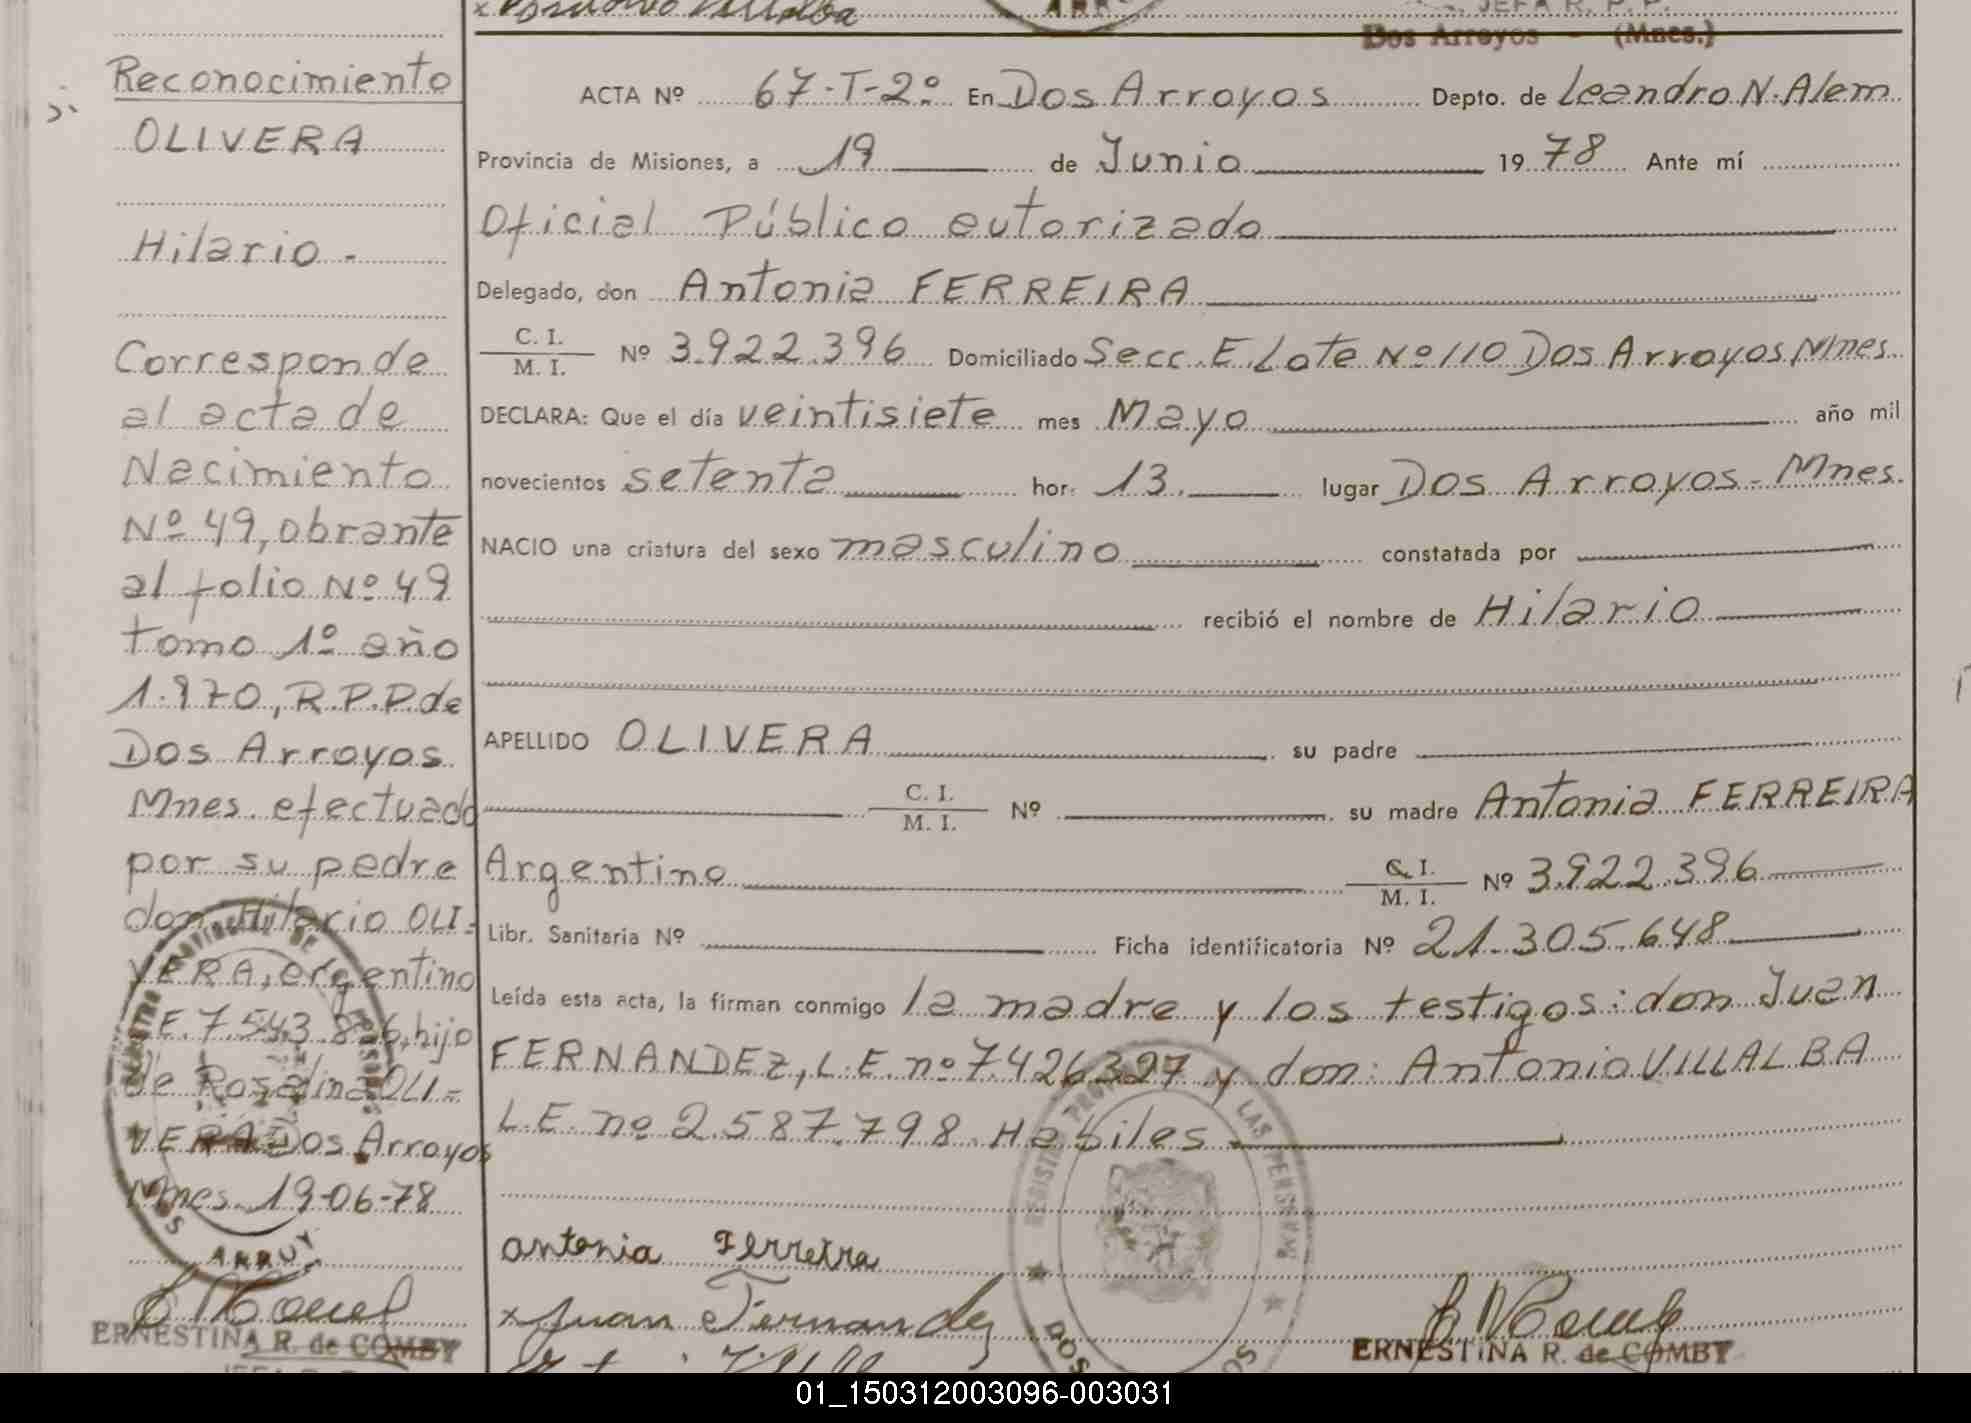 JEFA R. P. P.
Dos Arroyos - (Mnes.)
Reconocimiento
OLIVERA
Hilario.-
Corresponde
al acta de
Nacimiento
Nº 49, obrante
al folio Nº 49
tomo 1º año
1.970, R.P.P. de
Dos Arroyos
Mnes. efectuado
por su padre
don Hilario OLI=
VERA, argentino
E. 7.543.8 6, hijo
de Rosalina OLI=
VERA Dos Arroyos
Mnes. 19-06-78
ERNESTINA R. de COMBY
ACTA Nº 67-T-2º En Dos Arroyos Depto. de Leandro N. Alem
Provincia de Misiones, a 19 de Junio 1978 Ante mí
Oficial Público autorizado
Delegado, don Antonia FERREIRA
C. I.
M. I. Nº 3.922.396 Domiciliado Secc. E. Lote Nº 110 Dos Arroyos Mnes.
DECLARA: Que el día veintisiete mes Mayo año mil
novecientos setenta hor. 13. lugar Dos Arroyos - Mnes.
NACIO una criatura del sexo masculino constatada por
recibió el nombre de Hilario
APELLIDO OLIVERA su padre
C. I.
M. I. Nº su madre Antonia FERREIRA
Argentino C. I.
M. I. Nº 3.922.396
Libr. Sanitaria Nº Ficha identificatoria Nº 21.305.648
Leída esta acta, la firman conmigo la madre y los testigos: don Juan
FERNANDEZ, L.E. nº 7.426.327 y don: Antonio VILLALBA
L.E. nº 2.587.798. Habiles
antonia Ferreira
x Juan Fernandez
ERNESTINA R. de COMBY
01_150312003096-003031